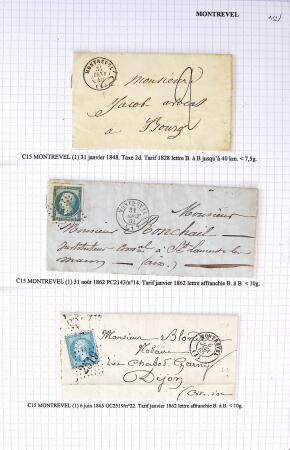 MONTREVEL
à Monsieur
Jacob avocat
à Bourg
2
C15 MONTREVEL (1) 31 janvier 1848. Taxe 2d. Tarif 1828 lettre B. à B jusqu'à 40 km. < 7,5g.
MONTREVEL
31
Monsieur
Monsieur Ronchail
à St Laurent les
macon (ain)
C15 MONTREVEL (1) 31 août 1862 PC2143/n°14. Tarif janvier 1862 lettre affranchie B. à B < 10g.
Monsieur
Notaire
rue Chabot Charny
Dijon
C15 MONTREVEL (1) 6 juin 1865 GC2519/n°22. Tarif janvier 1862 lettre affranchie B. à B. < 10g.